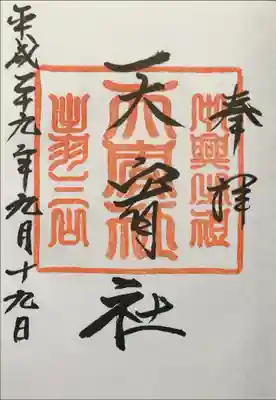 奉拝
天宥社
天宥社
出羽三山
平成二十九年九月十九日